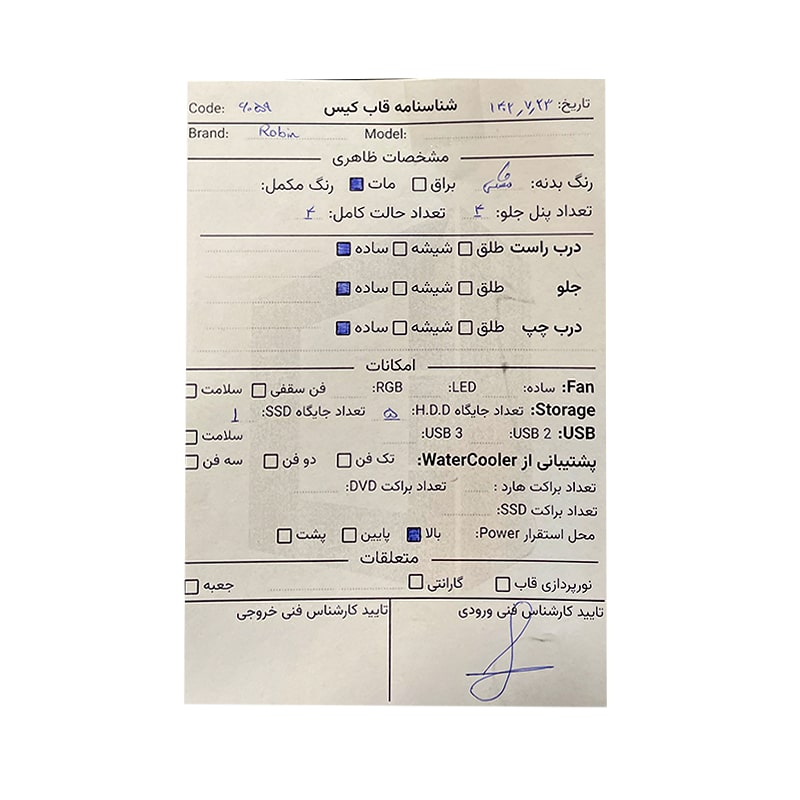 تاریخ: ۱۴۰۲٫۷٫۲۳ شناسنامه قاب کیس Code: ۹۰۵۵۹
Brand: Robin Model:
مشخصات ظاهری
رنگ بدنه: مشکی براق مات رنگ مکمل:
تعداد پنل جلو: ۴ تعداد حالت کامل: ۴
درب راست طلق شیشه ساده
جلو طلق شیشه ساده
درب چپ طلق شیشه ساده
امکانات
Fan: ساده: LED: RGB: فن سقفی سلامت
Storage: تعداد جایگاه H.D.D: ۵ تعداد جایگاه SSD: ۱
USB: USB 2: USB 3: سلامت
پشتیبانی از WaterCooler: تک فن دو فن سه فن
تعداد براکت هارد : تعداد براکت DVD:
تعداد براکت SSD:
محل استقرار Power: بالا پایین پشت
متعلقات
نورپردازی قاب گارانتی جعبه
تایید کارشناس فنی ورودی تایید کارشناس فنی خروجی